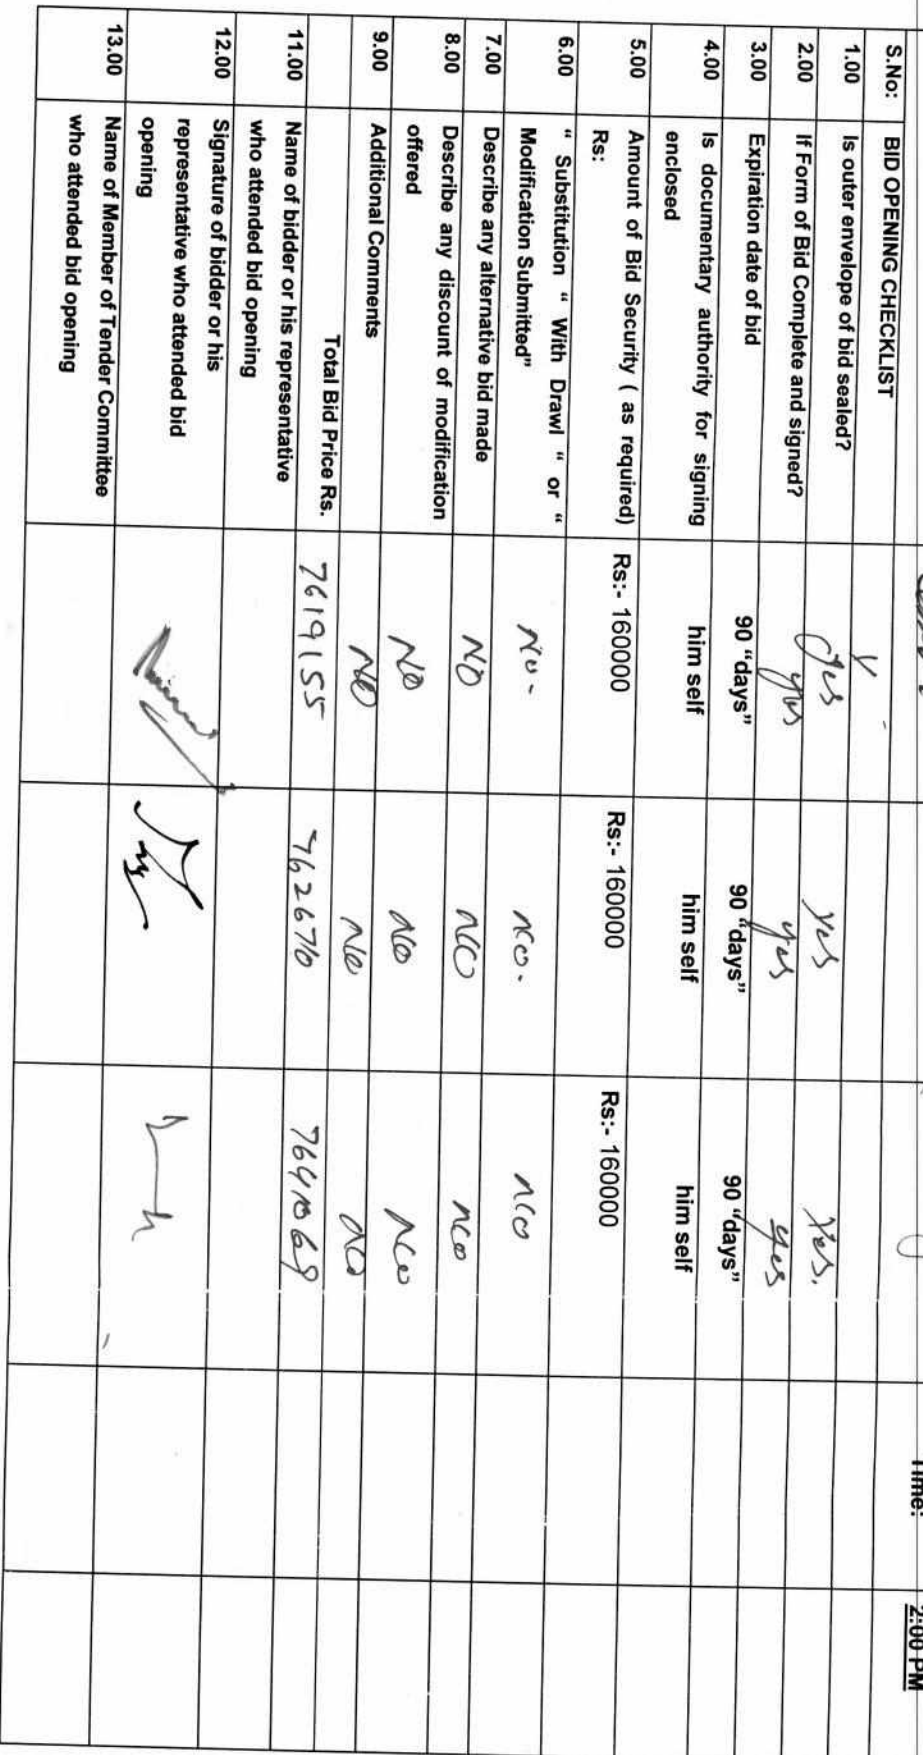 Time: 2:00 PM
S.No: BID OPENING CHECKLIST
1.00 Is outer envelope of bid sealed? Yes Yes Yes.
2.00 If Form of Bid Complete and signed? yes yes yes
3.00 Expiration date of bid 90 "days" 90 "days" 90 "days"
4.00 Is documentary authority for signing him self him self him self
enclosed
5.00 Amount of Bid Security ( as required) Rs:- 160000 Rs:- 160000 Rs:- 160000
Rs:
6.00 " Substitution " With Drawl " or " No- No. No
Modification Submitted"
7.00 Describe any alternative bid made NO NO NO
8.00 Describe any discount of modification No No No
offered
9.00 Additional Comments NO No No
Total Bid Price Rs. 7619155 7626710
11.00 Name of bidder or his representative
who attended bid opening
12.00 Signature of bidder or his
representative who attended bid
opening
13.00 Name of Member of Tender Committee
who attended bid opening